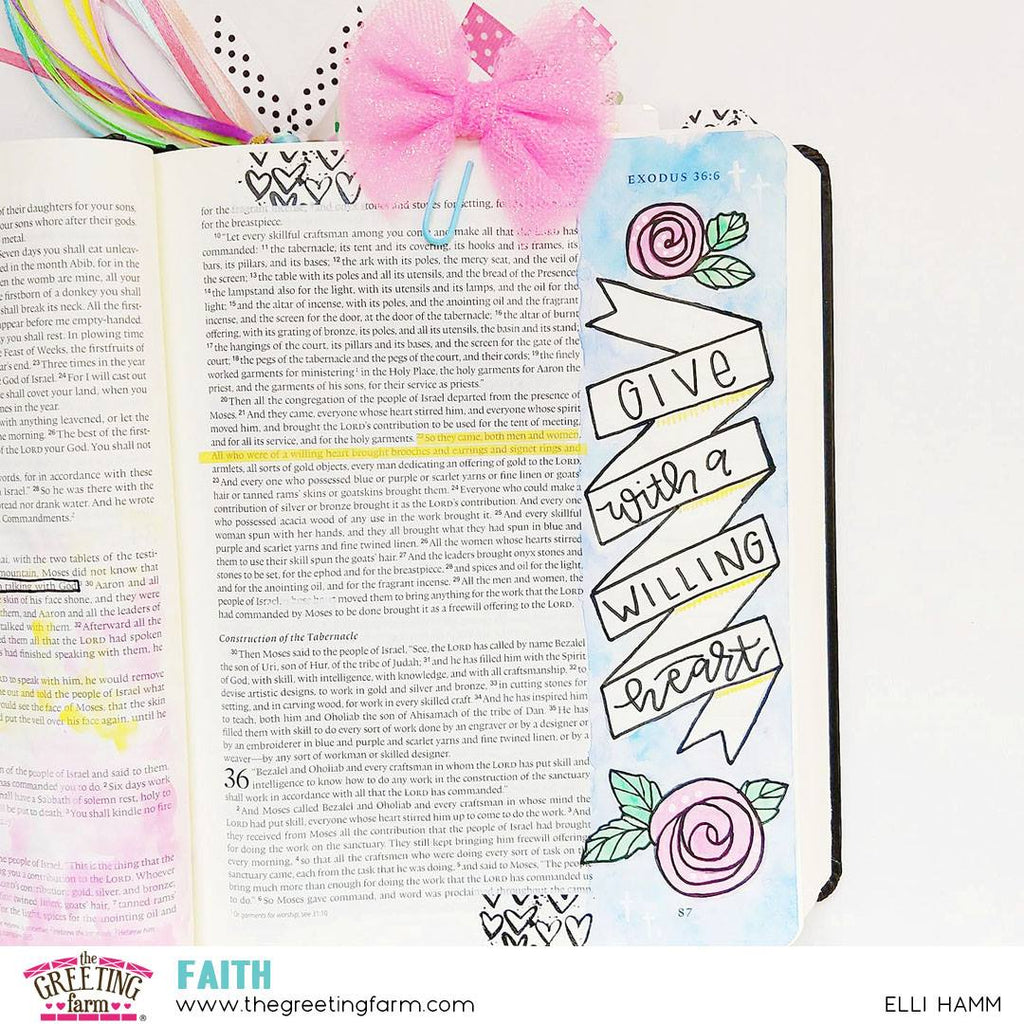 of their daughters for your sons,
our sons whore after their gods.
metal.
Seven days you shall eat unleav-
ed in the month Abib, for in the
en the womb are mine, all your
e firstborn of a donkey you shall
shall break its neck. All the first-
appear before me empty-handed.
y you shall rest. In plowing time
Feast of Weeks, the firstfruits of
ar's end. 23 Three times in the year
God of Israel. 24 For I will cast out
shall covet your land, when you
mes in the year.
with anything leavened, or let the
e morning. 26 The best of the first-
f the LORD your God. You shall not
ords, for in accordance with these
Israel." 28 So he was there with the
read nor drank water. And he wrote
Commandments.2
ai, with the two tablets of the testi-
mountain, Moses did not know that
n talking with God. 30 Aaron and all
skin of his face shone, and they were
them, and Aaron and all the leaders of
talked with them. 32 Afterward all the
ed them all that the LORD had spoken
s had finished speaking with them, he
RD to speak with him, he would remove
e out and told the people of Israel what
ould see the face of Moses, that the skin
d put the veil over his face again, until he
n of the people of Israel and said to them,
has commanded you to do. 2 Six days work
hall have a Sabbath of solemn rest, holy to
ll be put to death. 3 You shall kindle no fire
e people of Israel, "This is the thing that the
ng you a contribution to the LORD. Whoever
D's contribution: gold, silver, and bronze;
twined linen; goats' hair, 7 tanned rams'
or the light, spices for the anointing oil and
for the fragrant incense, 9 and onyx stones and stones for setting, for
for the breastpiece.
10 "Let every skillful craftsman among you come and make all that the LORD has
commanded: 11 the tabernacle, its tent and its covering, its hooks and its frames, its
bars, its pillars, and its bases; 12 the ark with its poles, the mercy seat, and the veil of
the screen; 13 the table with its poles and all its utensils, and the bread of the Presence;
14 the lampstand also for the light, with its utensils and its lamps, and the oil for the
light; 15 and the altar of incense, with its poles, and the anointing oil and the fragrant
incense, and the screen for the door, at the door of the tabernacle; 16 the altar of burnt
offering, with its grating of bronze, its poles, and all its utensils, the basin and its stand;
17 the hangings of the court, its pillars and its bases, and the screen for the gate of the
court; 18 the pegs of the tabernacle and the pegs of the court, and their cords; 19 the finely
worked garments for ministering1 in the Holy Place, the holy garments for Aaron the
priest, and the garments of his sons, for their service as priests."
20 Then all the congregation of the people of Israel departed from the presence of
Moses. 21 And they came, everyone whose heart stirred him, and everyone whose spirit
moved him, and brought the LORD's contribution to be used for the tent of meeting,
and for all its service, and for the holy garments. 22 So they came, both men and women.
All who were of a willing heart brought brooches and earrings and signet rings and
armlets, all sorts of gold objects, every man dedicating an offering of gold to the LORD.
23 And every one who possessed blue or purple or scarlet yarns or fine linen or goats'
hair or tanned rams' skins or goatskins brought them. 24 Everyone who could make a
contribution of silver or bronze brought it as the LORD's contribution. And every one
who possessed acacia wood of any use in the work brought it. 25 And every skillful
woman spun with her hands, and they all brought what they had spun in blue and
purple and scarlet yarns and fine twined linen. 26 All the women whose hearts stirred
them to use their skill spun the goats' hair. 27 And the leaders brought onyx stones and
stones to be set, for the ephod and for the breastpiece, 28 and spices and oil for the light,
and for the anointing oil, and for the fragrant incense. 29 All the men and women, the
people of Israel, moved them to bring anything for the work that the LORD
had commanded by Moses to be done brought it as a freewill offering to the LORD.
Construction of the Tabernacle
30 Then Moses said to the people of Israel, "See, the LORD has called by name Bezalel
the son of Uri, son of Hur, of the tribe of Judah; 31 and he has filled him with the Spirit
of God, with skill, with intelligence, with knowledge, and with all craftsmanship, 32 to
devise artistic designs, to work in gold and silver and bronze, 33 in cutting stones for
setting, and in carving wood, for work in every skilled craft. 34 And he has inspired him
to teach, both him and Oholiab the son of Ahisamach of the tribe of Dan. 35 He has
filled them with skill to do every sort of work done by an engraver or by a designer or
by an embroiderer in blue and purple and scarlet yarns and fine twined linen, or by a
weaver—by any sort of workman or skilled designer.
36 "Bezalel and Oholiab and every craftsman in whom the LORD has put skill and
intelligence to know how to do any work in the construction of the sanctuary
shall work in accordance with all that the LORD has commanded."
2 And Moses called Bezalel and Oholiab and every craftsman in whose mind the
LORD had put skill, everyone whose heart stirred him up to come to do the work. 3 And
they received from Moses all the contribution that the people of Israel had brought
for doing the work on the sanctuary. They still kept bringing him freewill offerings
every morning, 4 so that all the craftsmen who were doing every sort of task on the
sanctuary came, each from the task that he was doing, 5 and said to Moses, "The people
bring much more than enough for doing the work that the LORD has commanded us
to do." 6 So Moses gave command, and word was proclaimed throughout the camp
1 Or garments for worship; see 31:10
EXODUS 36:6
GIVE
with a
WILLING
heart
87
the
GREETING
farm®
FAITH
www.thegreetingfarm.com
ELLI HAMM